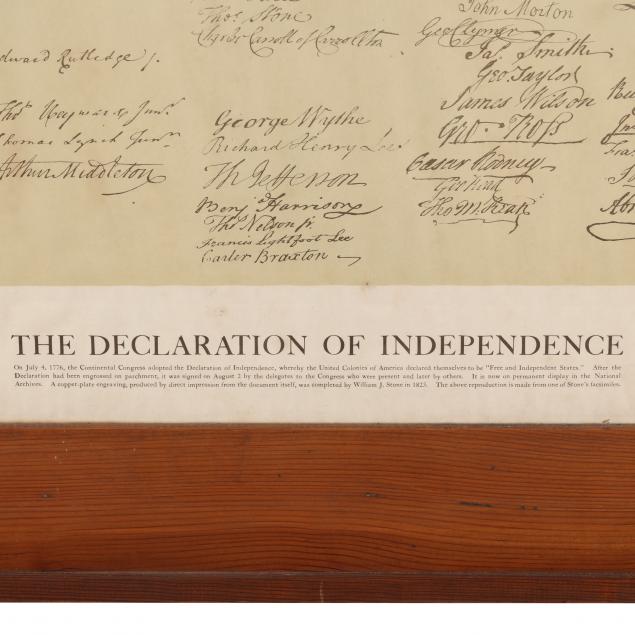 Thos. Stone
Charles Carroll of Carrollton
John Morton
Geo Clymer
Jas. Smith.
Geo. Taylor
James Wilson
Geo. Ross
Caesar Rodney
Geo Read
Tho M:Kean
dward Rutledge /.
Thos. Heyward Junr.
homas Lynch Junr.
Arthur Middleton
George Wythe
Richard Henry Lee
Th Jefferson
Benj. Harrison
Thos. Nelson jr.
Francis Lightfoot Lee
Carter Braxton
THE DECLARATION OF INDEPENDENCE
On July 4, 1776, the Continental Congress adopted the Declaration of Independence, whereby the United Colonies of America declared themselves to be "Free and Independent States." After the
Declaration had been engrossed on parchment, it was signed on August 2 by the delegates to the Congress who were present and later by others. It is now on permanent display in the National
Archives. A copper-plate engraving, produced by direct impression from the document itself, was completed by William J. Stone in 1823. The above reproduction is made from one of Stone's facsimiles.